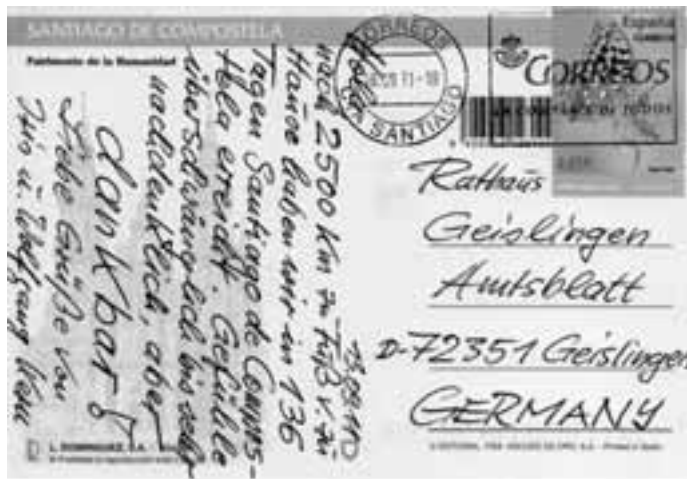 SANTIAGO DE COMPOSTELA
Patrimonio de la Humanidad
CORREOS
SANTIAGO
España
CORREOS
Hola
13.09.110
nach 2500 Km zu Fuß v. zu
Hause haben wir in 136
Tagen Santiago de Compos-
tela erreicht. Gefühle
überschwänglich bis sehr
nachdenklich, aber
dankbar
Liebe Grüße von
u. Wolfgang
Rathaus
Geislingen
Amtsblatt
D-72351 Geislingen
GERMANY
L. DOMINGUEZ, S.A.